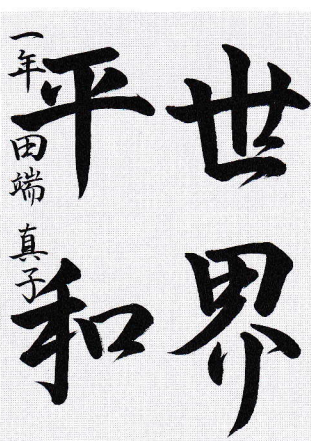 世界
平和
一年 田端 真子